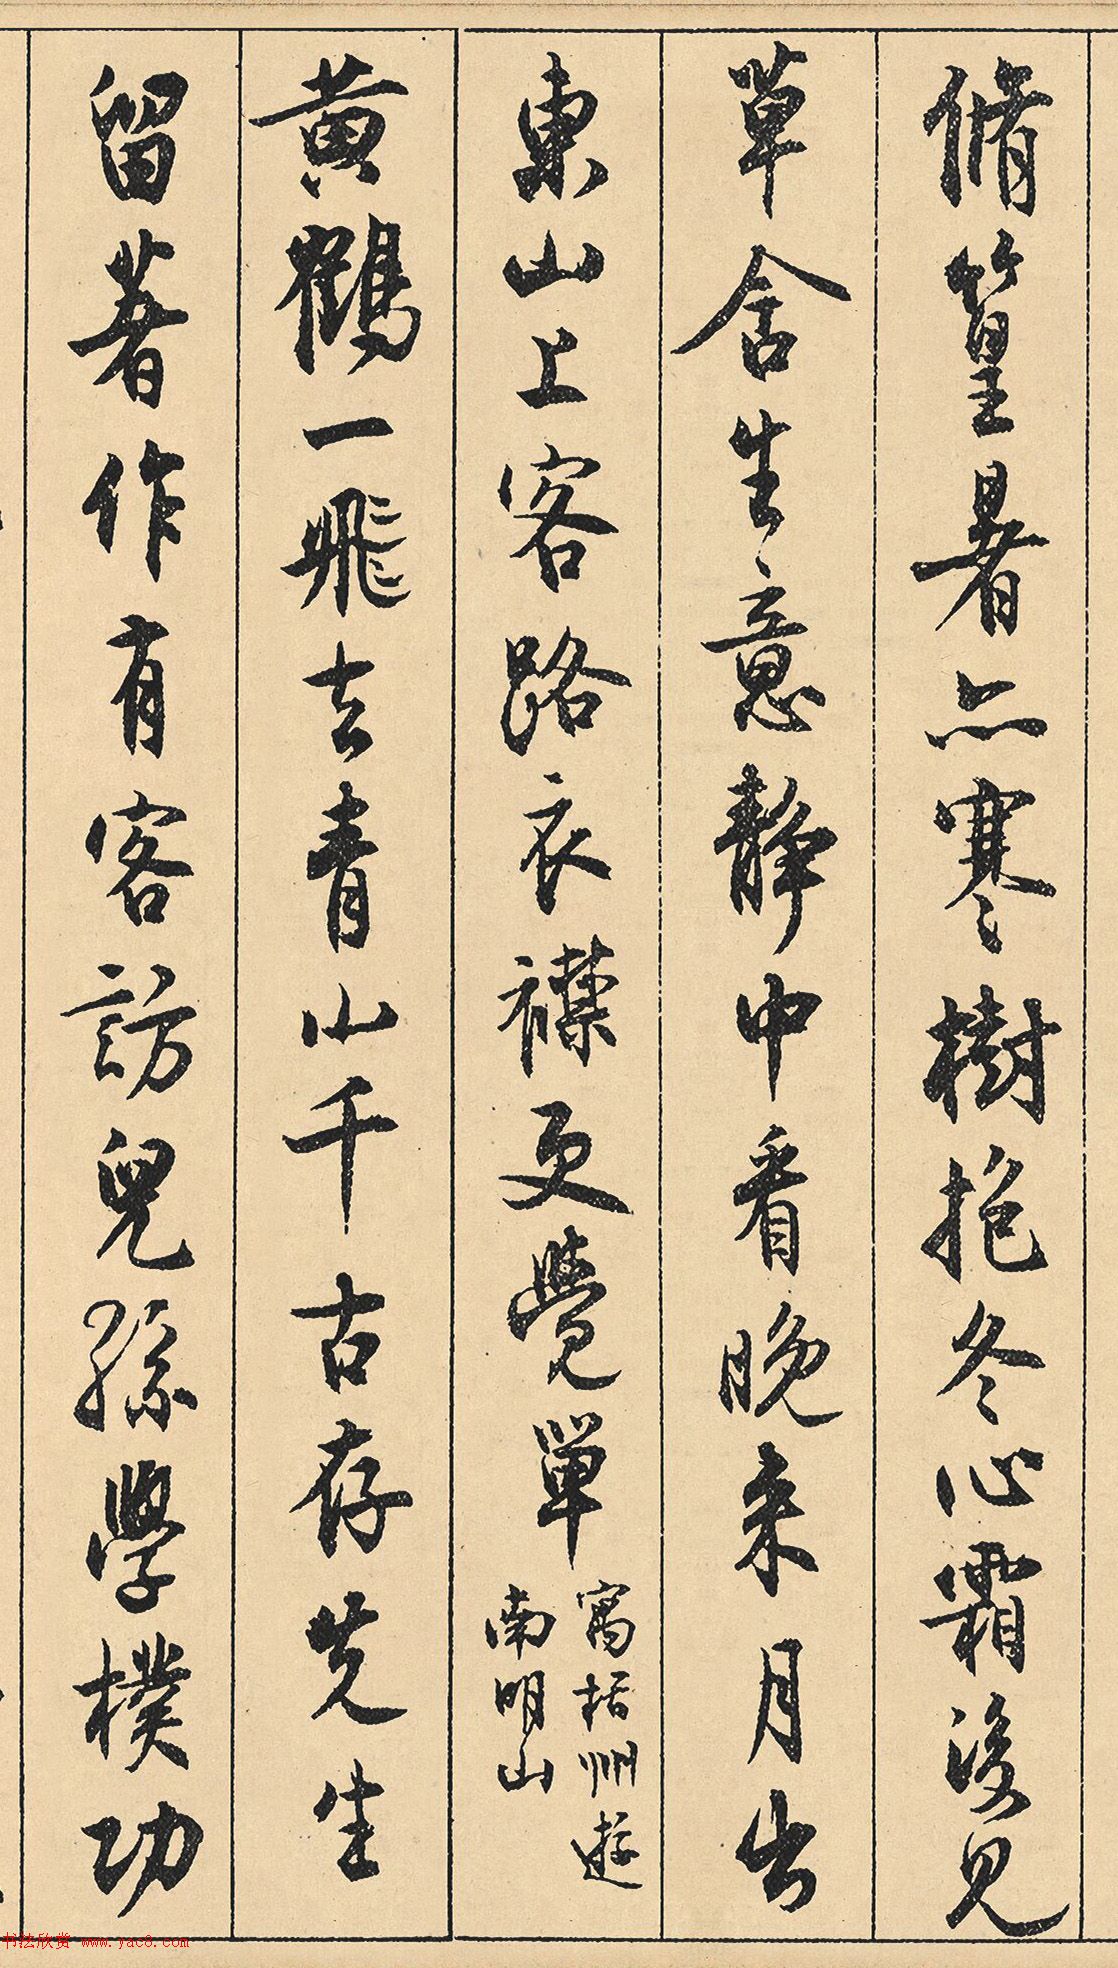 脩篁暑亦寒樹抱冬心霜後見
草舍生意靜中看晚來月出
東山上客路衣襟更覺單
寓括州遊
南明山
黃鶴一飛去青山千古存先生
留著作有客訪兒孫學樸功
书法欣赏 www.yac8.com